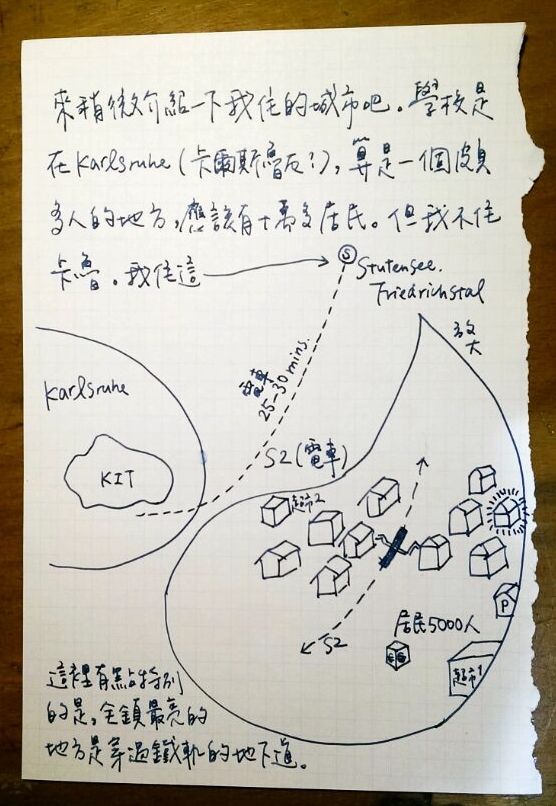 來稍微介紹一下我住的城市吧。學校是
在Karlsruhe(卡爾斯魯厄?),算是一個頗具
多人的地方,應該有十萬多居民。但我不住
卡魯。我住這
S
Stutensee.
Friedrichstal
放大
電車
25-30 mins.
Karlsruhe
KIT
S2(電車)
超市2
P
居民5000人
S2
超市1
這裡有點特別
的是,全鎮最亮的
地方是穿過鐵軌的地下道。